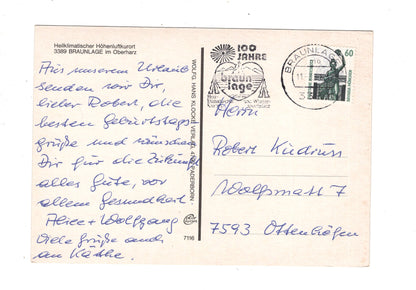 Heilklimatischer Höhenluftkurort
3389 BRAUNLAGE im Oberharz
Aus unserem Urlaub
senden wir Dir,
lieber Robert, die
besten Geburtstags-
grüße und wünschen
Dir für die Zukunft
alles Gute, vor
allem Gesundheit.
Alice + Wolfgang
Viele Grüße auch
an Käthe.
7116
WOLFG. HANS KLOCKE VERLAG, PADERBORN
100
JAHRE
braun
lage
BRAUNLAGE
60
Herrn
Robert
7593 Ottenhöfen